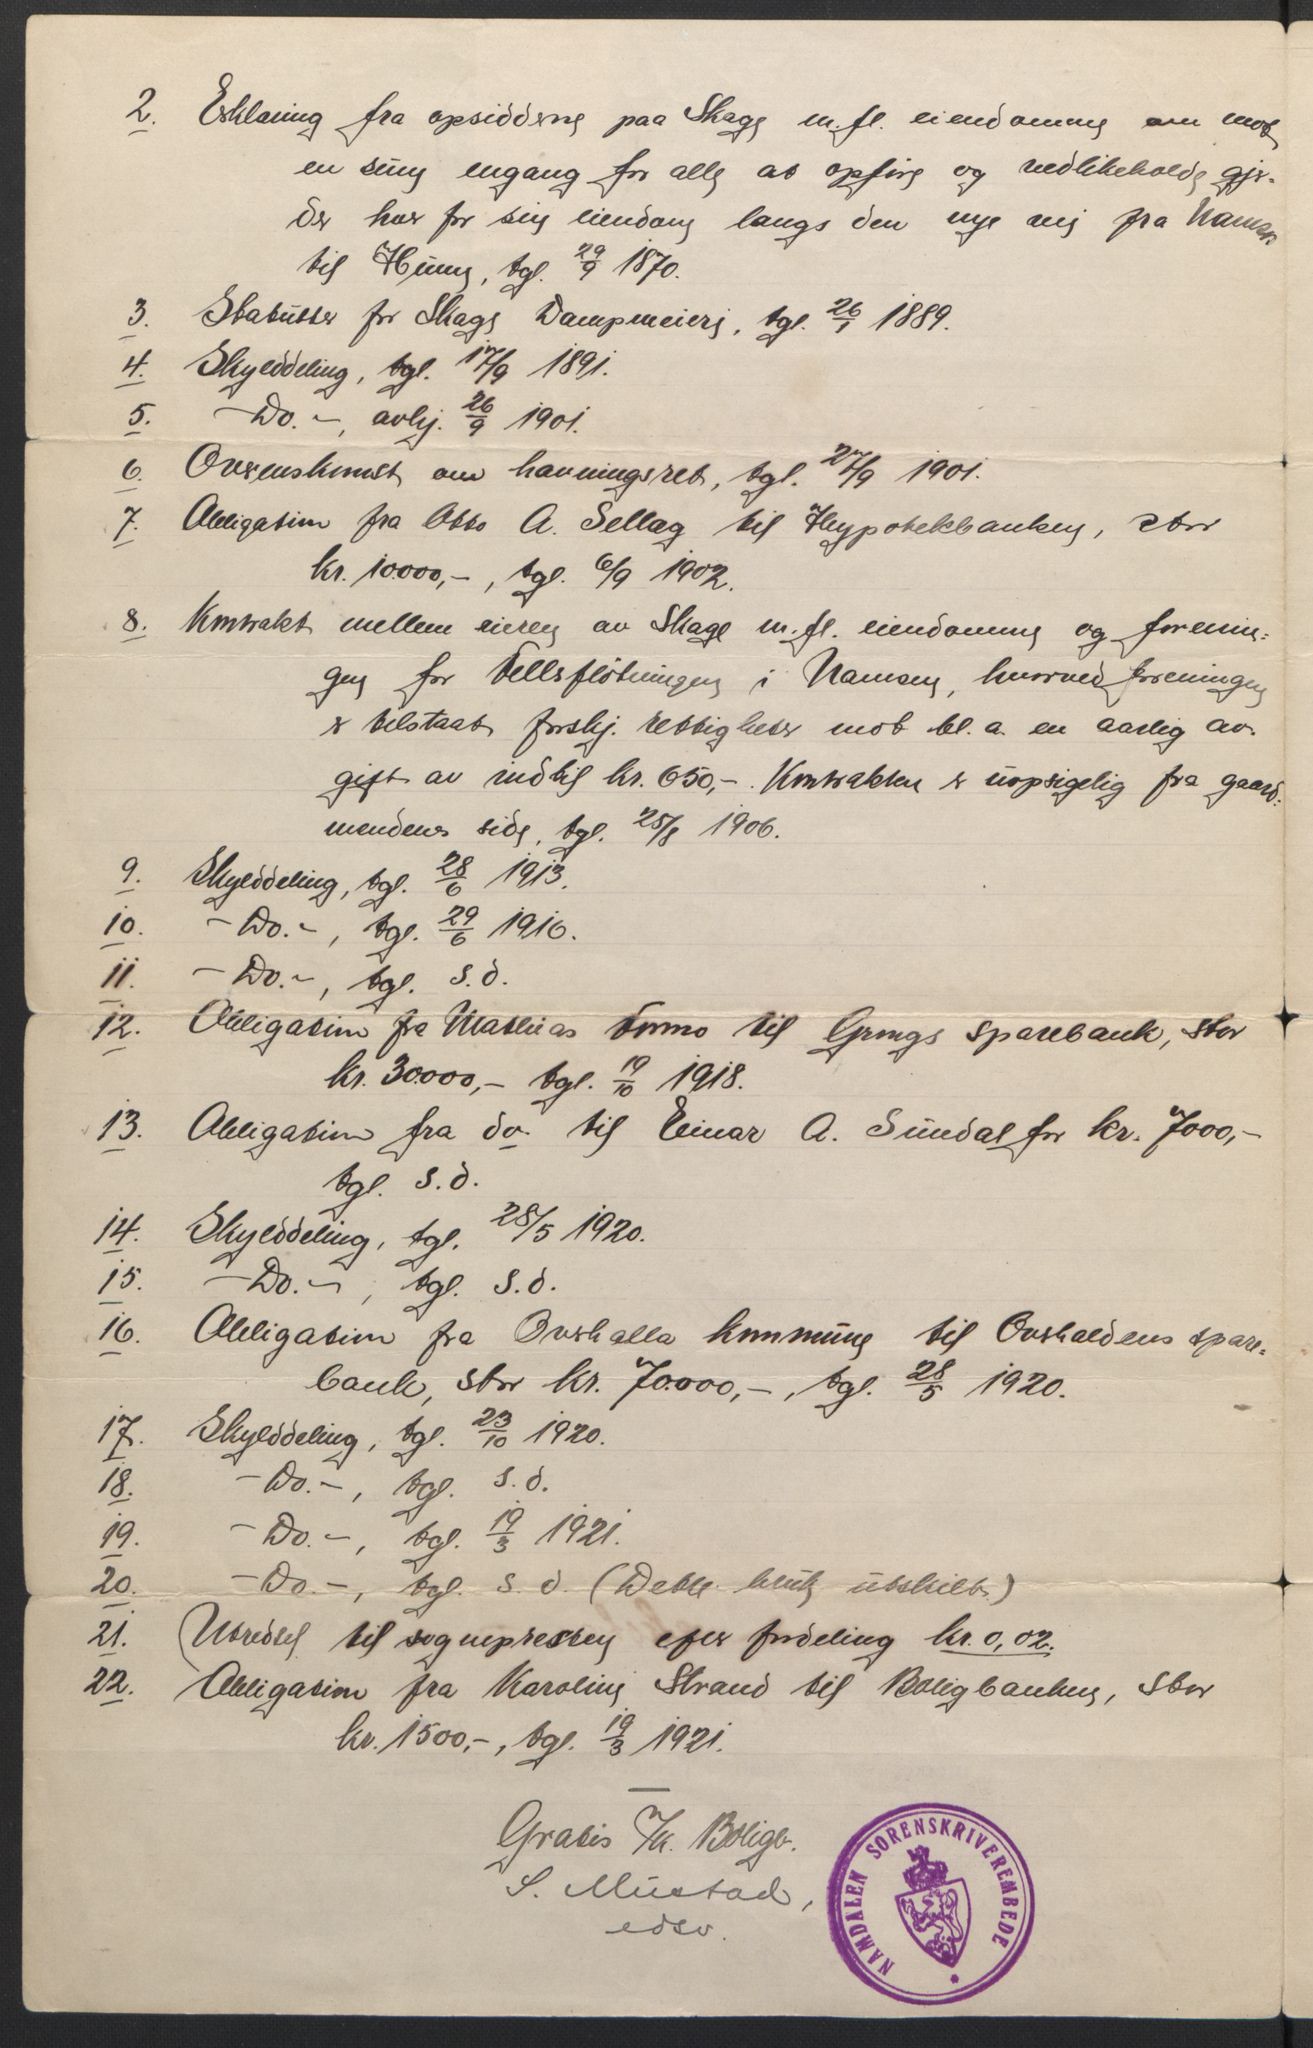 2. Erklæring fra opsidderne paa Skage m.fl. eiendomme om mot
en sum engang for alle at opføre og vedlikeholde gjer-
der hver for sin eiendom langs den nye vei fra Namsen
til Hunn, tgl. 29/9 1870.
3. Statutter for Skage Dampmeieri, tgl. 26/1 1889.
4. Skylddeling, tgl. 17/9 1891.
5. -Do.-, avhj. 26/9 1901.
6. Overenskomst om havningsret, tgl. 27/9 1901.
7. Obligation fra Otto A. Sellæg til Hypotekbanken, stor
kr. 10000,-, tgl. 6/9 1902.
8. Kontrakt mellem eieren av Skage m.fl. eiendomme og forenin-
gen for Fellesfløtningen i Namsen, hvorved foreningen
er tilstaat forskj. rettigheter mot bl.a. en aarlig av-
gift av indtil kr. 650,-. Kontrakten er uopsigelig fra gaard-
mendenes side, tgl. 25/8 1906.
9. Skylddeling, tgl. 28/6 1913.
10. -Do.-, tgl. 29/6 1916.
11. -Do.-, tgl. s.d.
12. Obligation fra Mathias Formo til Grongs sparebank, stor
kr. 30000,- tgl. 19/10 1918.
13. Obligation fra do. til Einar A. Sundal for kr. 7000,-
tgl. s.d.
14. Skylddeling, tgl. 28/5 1920.
15. -Do.-, tgl. s.d.
16. Obligation fra Overhalla kommune til Overhaldens spare-
bank, stor kr. 70000,-, tgl. 28/5 1920.
17. Skylddeling, tgl. 23/10 1920.
18. -Do.-, tgl. s.d.
19. -Do.-, tgl. 19/3 1921.
20. -Do.-, tgl. s.d. (Dette bruk utskilt.)
21. Utredsel til sognepresten efter fordeling kr. 0,02.
22. Obligation fra Karoline Strand til Boligbanken, stor
kr. 1500,-, tgl. 19/3 1921.
Gratis Boligb.
S. Mustad,
edsv.
NAMDALEN SORENSKRIVEREMBEDE